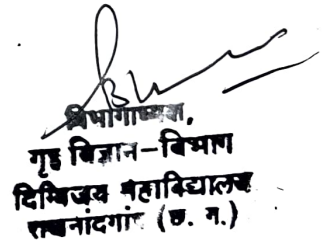 विभागाध्यक्ष,
गृह विज्ञान-विभाग
दिग्विजय महाविद्यालय
राजनांदगांव (छ. ग.)